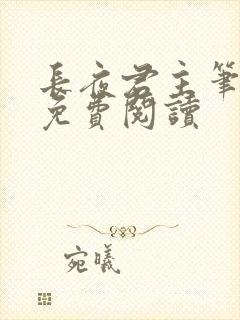 長夜君主筆
免費閱讀
宛曦